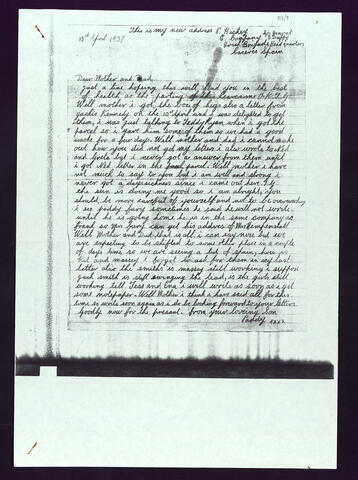 This is my new address P. Hickey
13th April 1937
C. Company
Irish Brigade Headquarters
Caceres Spain
Dear Mother and Dad,
Just a line hoping this will find you in the best
of health as the parting of this leave me O.K. T.G.
Well mother i got the box of figs also a letter from
Jackie Kennedy on the 12th April and i was delighted to get
them, i was just talking to Teddy Ryan when i got the
parcel so i gave him some of them so we had a good
smoke for a few days. Well mother and dad i cannot make
out how you did not get my letters i also wrote to Ned
and but i never got an answer from them until
i got Neds letter in the parcel. Well mother i have
not much to say to you but i am well and strong i
never got a days sickness since i came out here T.G.
the sun is doing me good so i am alright, you
should be more careful of yourself and not to be overworking
i see paddy Jury sometimes he said he will not write
until he is going home he is in the same company as
Frank so Mrs Jury can get his address of Mrs Hempenstall
Well Mother and Dad that is all i can say now but we
are expecting to be shifted to some other place in a couple
of days time so we are seeing a bit of spain, how is
Pat and massey i forgot to ask for them in my last
letter also the smiths is massey still working i suppose
jack smith is still swinging the lead, is the girls still
working tell Tess and Ena i will write as soon as i get
some notepaper. Well Mother i think i have said all for this
time so write soon again as i do be looking forward to your letters.
Goodby now for the present. From your loving Son
Paddy xxxx